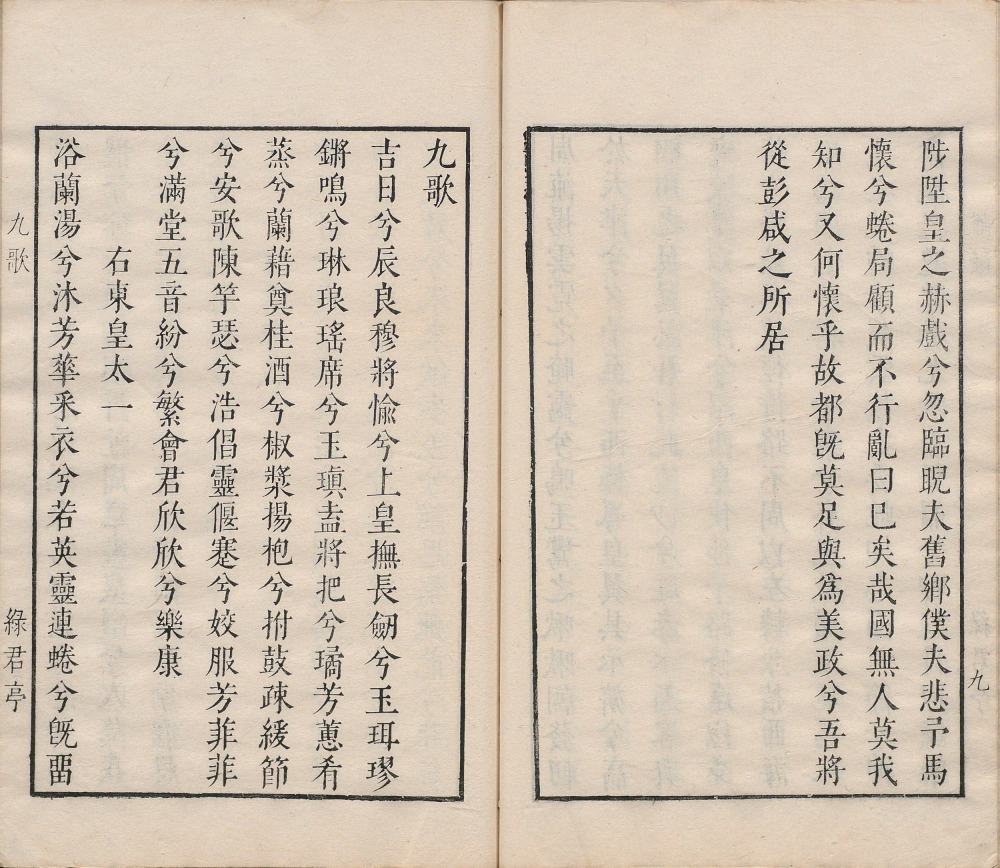 陟陞皇之赫戲兮忽臨睨夫舊鄉僕夫悲予馬
懷兮蜷局顧而不行亂曰已矣哉國無人莫我
知兮又何懷乎故都旣莫足與爲美政兮吾將
從彭咸之所居
九
九歌
吉日兮辰良穆將愉兮上皇撫長劒兮玉珥璆
鏘鳴兮琳琅瑤席兮玉瑱盍將把兮璚芳蕙肴
蒸兮蘭藉奠桂酒兮椒漿揚枹兮拊鼓疎緩節
兮安歌陳竽瑟兮浩倡靈偃蹇兮姣服芳菲菲
兮滿堂五音紛兮繁會君欣欣兮樂康
右東皇太一
浴蘭湯兮沐芳華釆衣兮若英靈連蜷兮旣畱
九歌
綠君亭